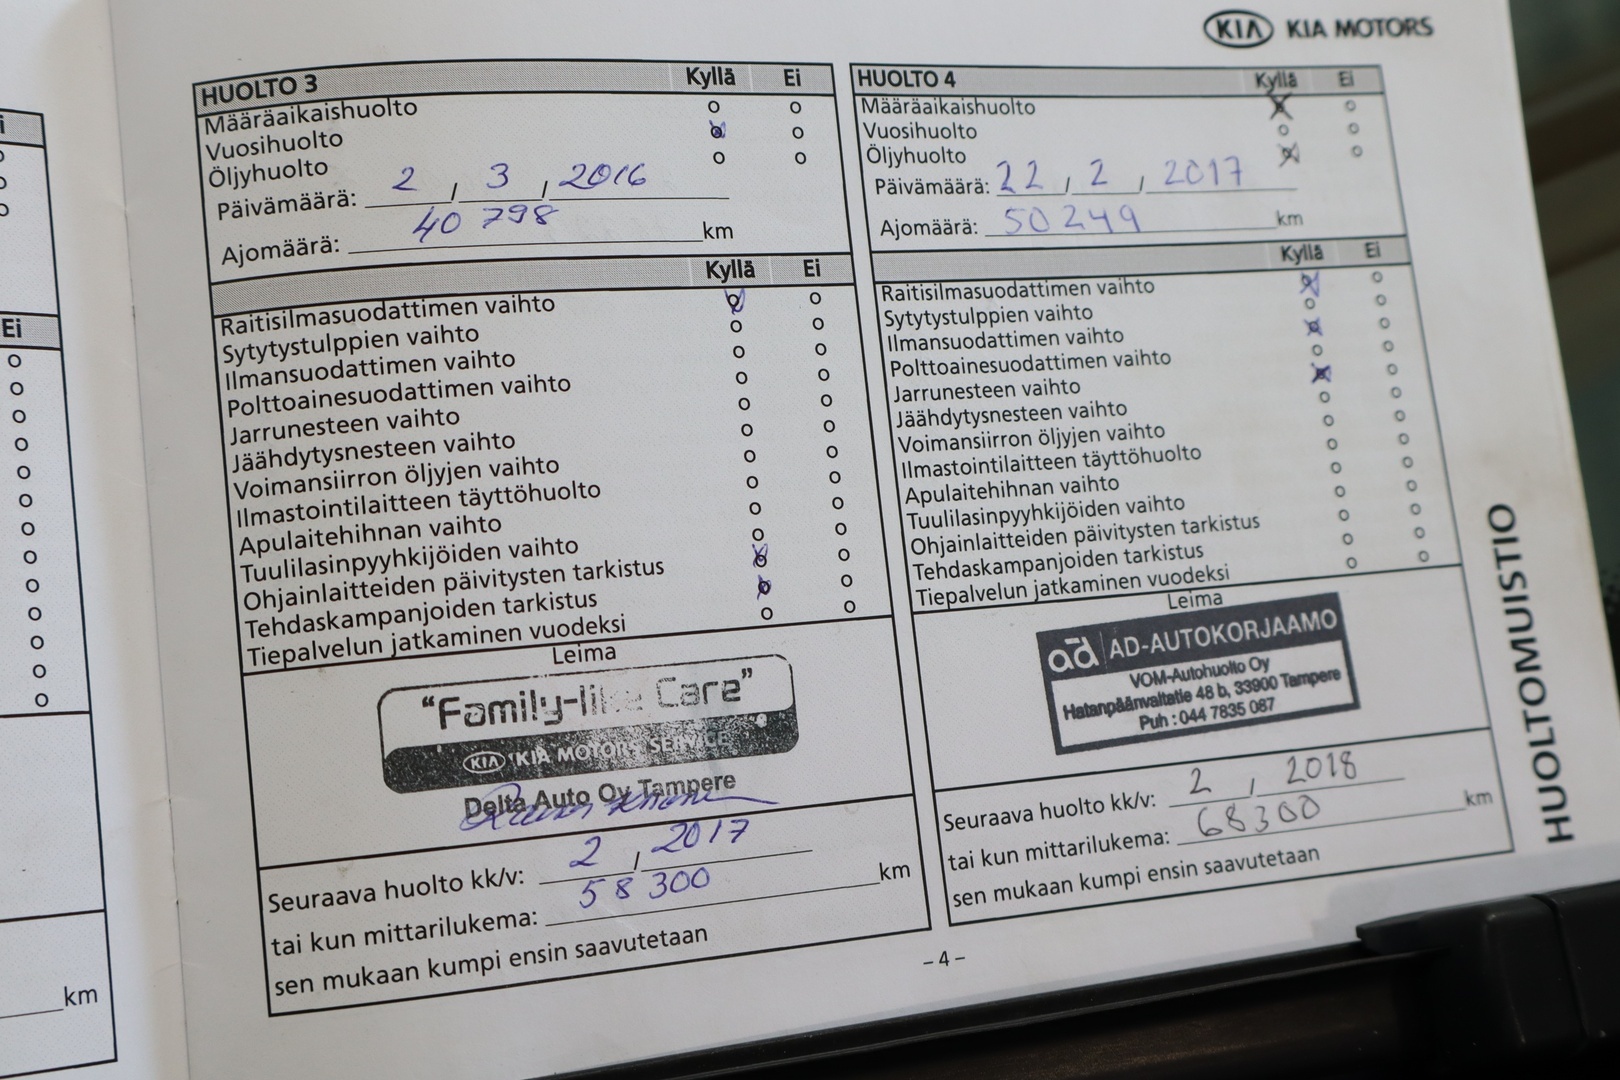 KIA KIA MOTORS
HUOLTO 3 Kyllä Ei
Määräaikaishuolto
Vuosihuolto
Öljyhuolto
Päivämäärä: 2 / 3 / 2016
Ajomäärä: 40 798 km
Kyllä Ei
Raitisilmasuodattimen vaihto
Sytytystulppien vaihto
Ilmansuodattimen vaihto
Polttoainesuodattimen vaihto
Jarrunesteen vaihto
Jäähdytysnesteen vaihto
Voimansiirron öljyjen vaihto
Ilmastointilaitteen täyttöhuolto
Apulaitehihnan vaihto
Tuulilasinpyyhkijöiden vaihto
Ohjainlaitteiden päivitysten tarkistus
Tehdaskampanjoiden tarkistus
Tiepalvelun jatkaminen vuodeksi
Leima
"Family-like Care"
KIA KIA MOTORS SERVICE
Delta Auto Oy Tampere
Seuraava huolto kk/v: 2 / 2017
tai kun mittarilukema: 58 300 km
sen mukaan kumpi ensin saavutetaan
HUOLTO 4 Kyllä Ei
Määräaikaishuolto
Vuosihuolto
Öljyhuolto
Päivämäärä: 22 / 2 / 2017
Ajomäärä: 50249 km
Kyllä Ei
Raitisilmasuodattimen vaihto
Sytytystulppien vaihto
Ilmansuodattimen vaihto
Polttoainesuodattimen vaihto
Jarrunesteen vaihto
Jäähdytysnesteen vaihto
Voimansiirron öljyjen vaihto
Ilmastointilaitteen täyttöhuolto
Apulaitehihnan vaihto
Tuulilasinpyyhkijöiden vaihto
Ohjainlaitteiden päivitysten tarkistus
Tehdaskampanjoiden tarkistus
Tiepalvelun jatkaminen vuodeksi
Leima
ad AD-AUTOKORJAAMO
VOM-Autohuolto Oy
Hatanpäänvaltatie 48 b, 33900 Tampere
Puh : 044 7835 087
Seuraava huolto kk/v: 2 / 2018
tai kun mittarilukema: 68300 km
sen mukaan kumpi ensin saavutetaan
- 4 -
HUOLTOMUISTIO
Ei
km